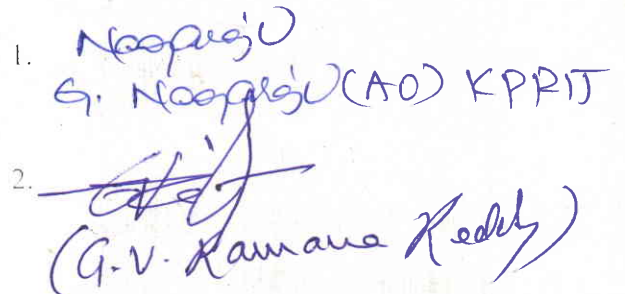 1. Nagaraju
G. Nagaraju (AO) KPRIT
2.
(G.V. Ramana Reddy)